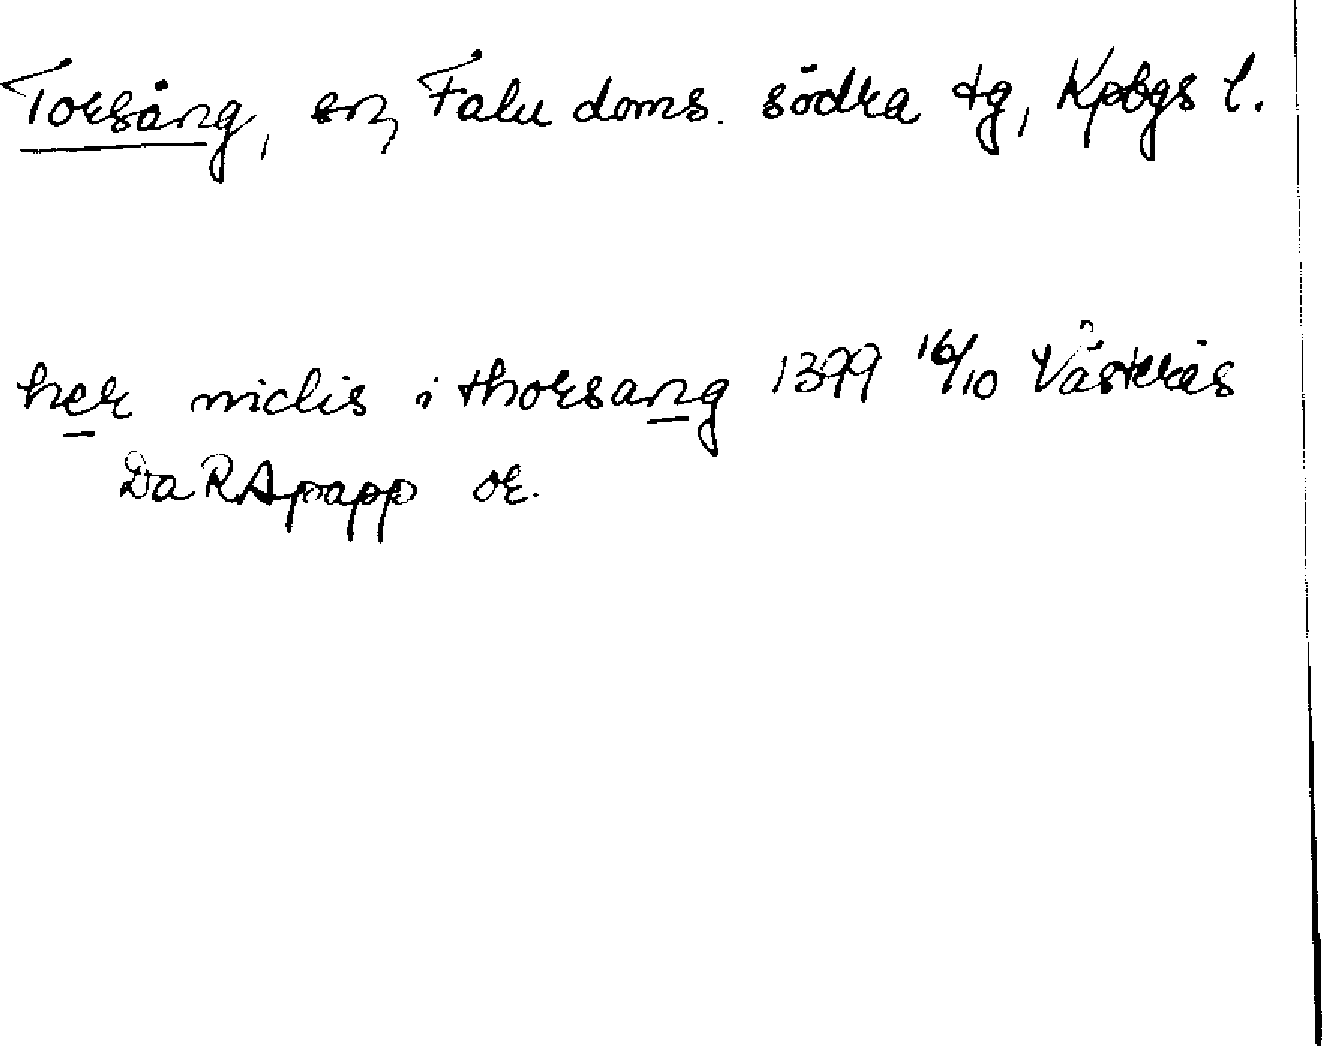 Torsång, sn, Falu doms. södra tg, Kpbgs l.
her niclis i thorsang 1399 16/10 Västerås
Da RApapp or.